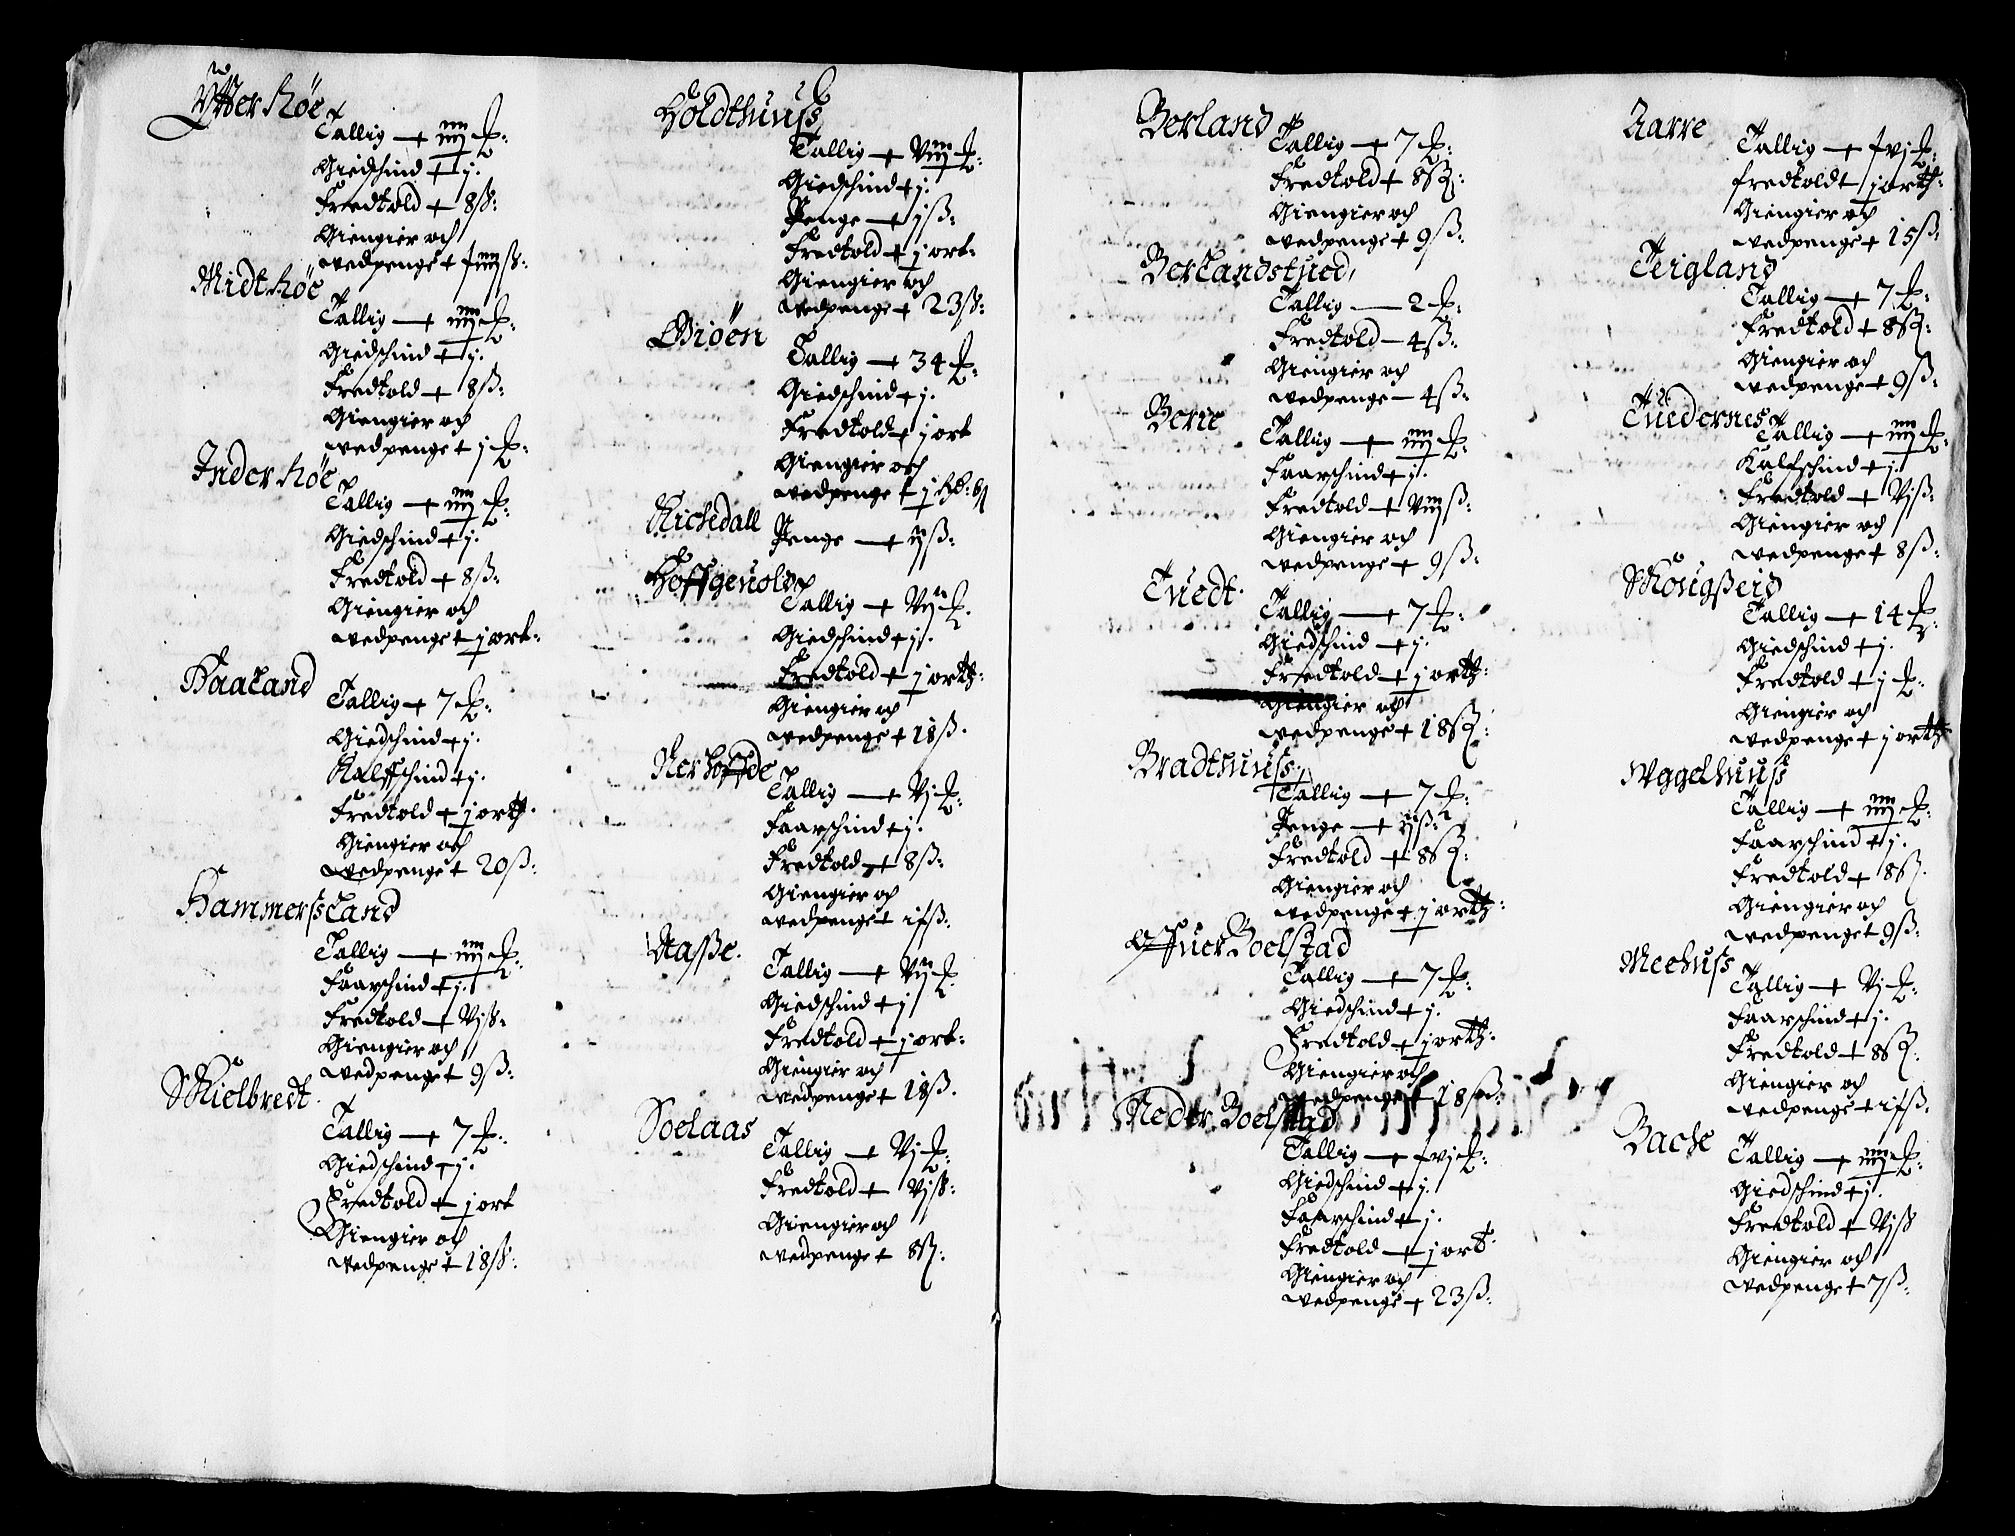 Ytter Høe
Tallig — iiij
Giedschind — j.
Fredtold — 8 ß:
Giengier och
wedpenge — ß:
Midt Høe
Tallig — iiij
Giedschind — j.
Fredtold — 8 ß:
Giengier och
wedpenge — j
Inder Høe
Tallig — iiij
Giedschind — j.
Fredtold — 8 ß:
Giengier och
wedpenge — j ort:
Haaland
Tallig — 7
Giedschind — j.
Kalfschind — j.
Fredtold — j ortt.
Giengier och
wedpenge — 20 ß:
Hammerßland
Tallig — iiij
Faarschind — j.
Fredtold — Vj ß:
Giengier och
wedpenge — 9 ß:
Skielbredt.
Tallig — 7
Giedschind — j.
Fredtold — j ort
Giengier och
wedpenge — 18 ß:
Holdthuuß
Tallig — Viij
Giedschind — j.
Penge — j ß:
Fredtold — j ort.
Giengier och
wedpenge — 23 ß:
Giøen
Tallig — 34
Giedschind — j.
Fredtold — j ort
Giengier och
wedpenge — j
Richedall
Penge — ij ß:
Hoffgeuold
Tallig — Vij
Giedschind — j.
Fredtold — j ortt:
Giengier och
wedpenge — 18 ß.
Nerhoffde
Tallig — Vj
Faarschind — j.
Fredtold — 8 ß:
Giengier och
wedpenge — ß:
Naße.
Tallig — Vij
Giedschind — j
Fredtold — j ort:
Giengier och
wedpenge — 18 ß.
Soelaas
Tallig — Vj
Fredtold — Vj ß:
Giengier och
wedpenge — 8 ß.
Berland
Tallig — 7
Fredtold — 8 ß:
Giengier och
wedpenge — 9 ß:
Berlandstued,
Tallig — 2
Fredtold — 4 ß:
Giengier och
wedpenge — 4 ß:
Berie
Tallig — iiij
Faarschind — j.
Fredtold — Viij ß:
Giengier och
wedpenge — 9 ß:
Tuedt.
Tallig — 7
Giedschind — j.
Fredtold — j ortt:
Giengier och
wedpenge — 18 ß:
Bradthuuß.
Tallig — 7
Penge — ij ß:
Fredtold — 8 ß:
Giengier och
wedpenge — j ortt:
Offuer Boelstad
Tallig — 7
Giedschind — j.
Fredtold — j ortt:
Giengier och
wedpenge — 18 ß:
Neder Boelstad
Tallig —
Giedschind — j.
Faarschind — j.
Fredtold — j ort.
Giengier och
wedpenge — 23 ß:
Aarre
Tallig —
fredtold — j ortt:
Giengier och
wedpenge — 15 ß:
Teigland
Tallig — 7
Fredtold — 8 ß:
Giengier och
wedpenge — 9 ß:
Tuedernes
Tallig — iiij
Kalfschind — j.
Fredtold — Vj ß:
Giengier och
wedpenge — 8 ß:
Skougßeid
Tallig — 14
Giedschind — j.
Fredtold — j
Giengier och
wedpenge — j ortt
Wggelhuuß
Tallig — iiij
Faarschind — j.
Fredtold — 8 ß.
Giengier och
wedpenge — 9 ß:
Meehuß
Tallig — Vj
Faarschind — j.
Fredtold — 8 ß:
Giengier och
wedpenge — ß:
Bache
Tallig — iiij
Giedschind — j.
Fredtold — Vj ß
Giengier och
wedpenge — 7 ß: